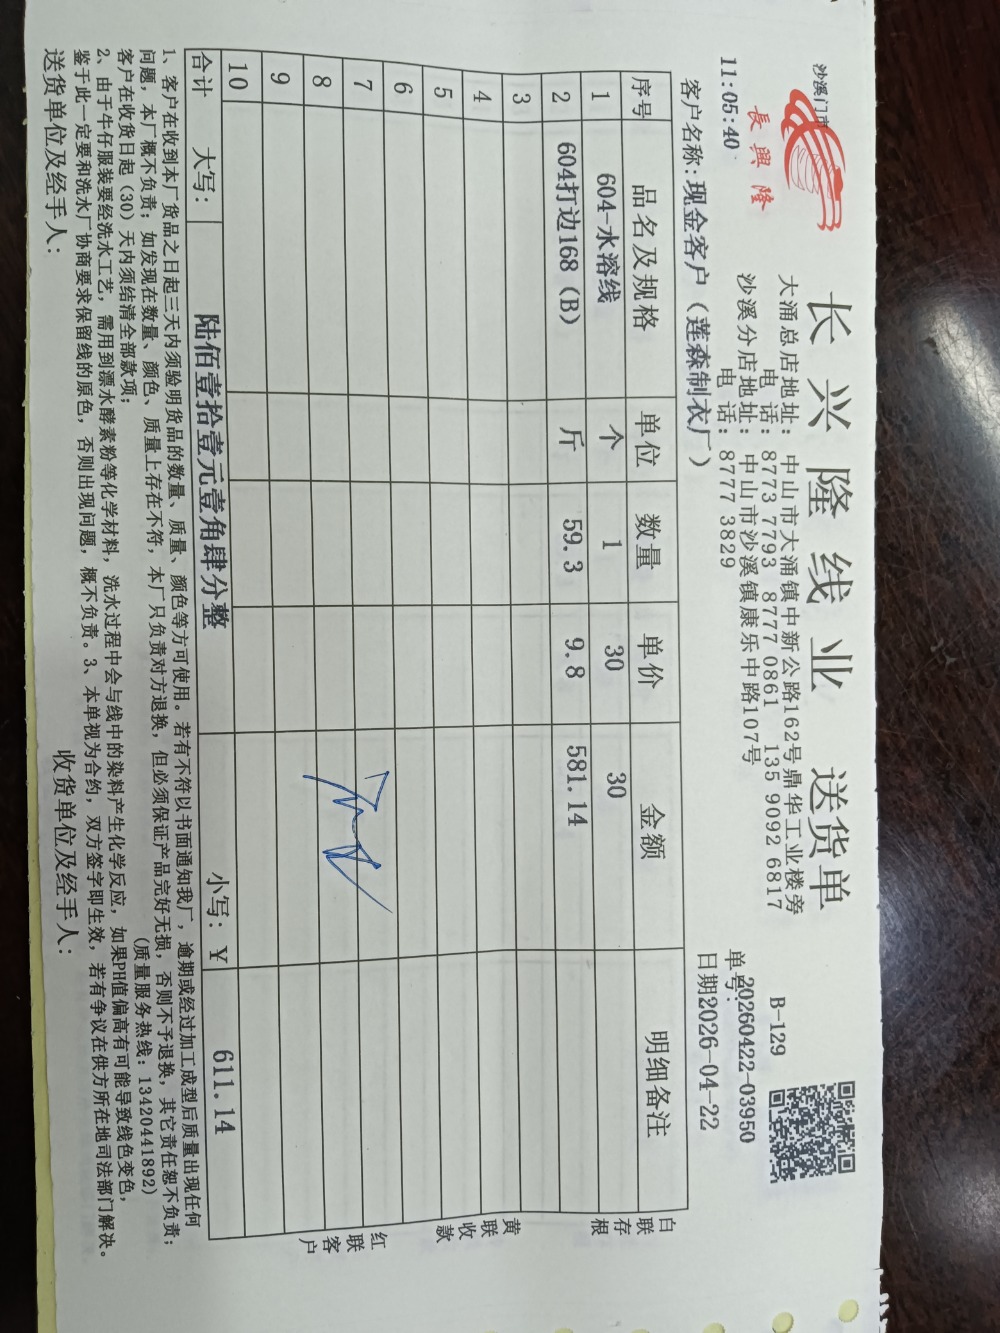 长兴隆线业 送货单
沙溪门市
長興隆
大涌总店地址：中山市大涌镇中新公路162号鼎华工业楼旁
电 话：8773 7793 8777 0861 135 9092 6817
沙溪分店地址：中山市沙溪镇康乐中路107号
电 话：8777 3829
B-129
单号：20260422-03950
11:05:40
日期2026-04-22
客户名称：现金客户（莲森制衣厂）
序号 品名及规格 单位 数量 单价 金额 明细备注
1 604-水溶线 个 1 30 30
2 604打边168（B） 斤 59.3 9.8 581.14
3
4
5
6
7
8
9
10
合计 大写： 陆佰壹拾壹元壹角肆分整 小写：￥ 611.14
白联存根
黄联收款
红联客户
1、客户在收到本厂货品之日起三天内须验明货品的数量、质量、颜色等方可使用。若有不符以书面通知我厂，逾期或经过加工成型后质量出现任何
问题，本厂概不负责；如发现在数量、颜色、质量上存在不符，本厂只负责对方退换，但必须保证产品完好无损，否则不予退换，其它责任恕不负责；
客户在收货日起（30）天内须结清全部款项； （质量服务热线：13420441892）
2、由于牛仔服装要经洗水工艺，需用到漂水酵素粉等化学材料，洗水过程中会与线中的染料产生化学反应，如果PH值偏高有可能导致线色变色，
鉴于此一定要和洗水厂协商要求保留线的原色，否则出现问题，概不负责。3、本单视为合约，双方签字即生效，若有争议在供方所在地司法部门解决。
送货单位及经手人： 收货单位及经手人：